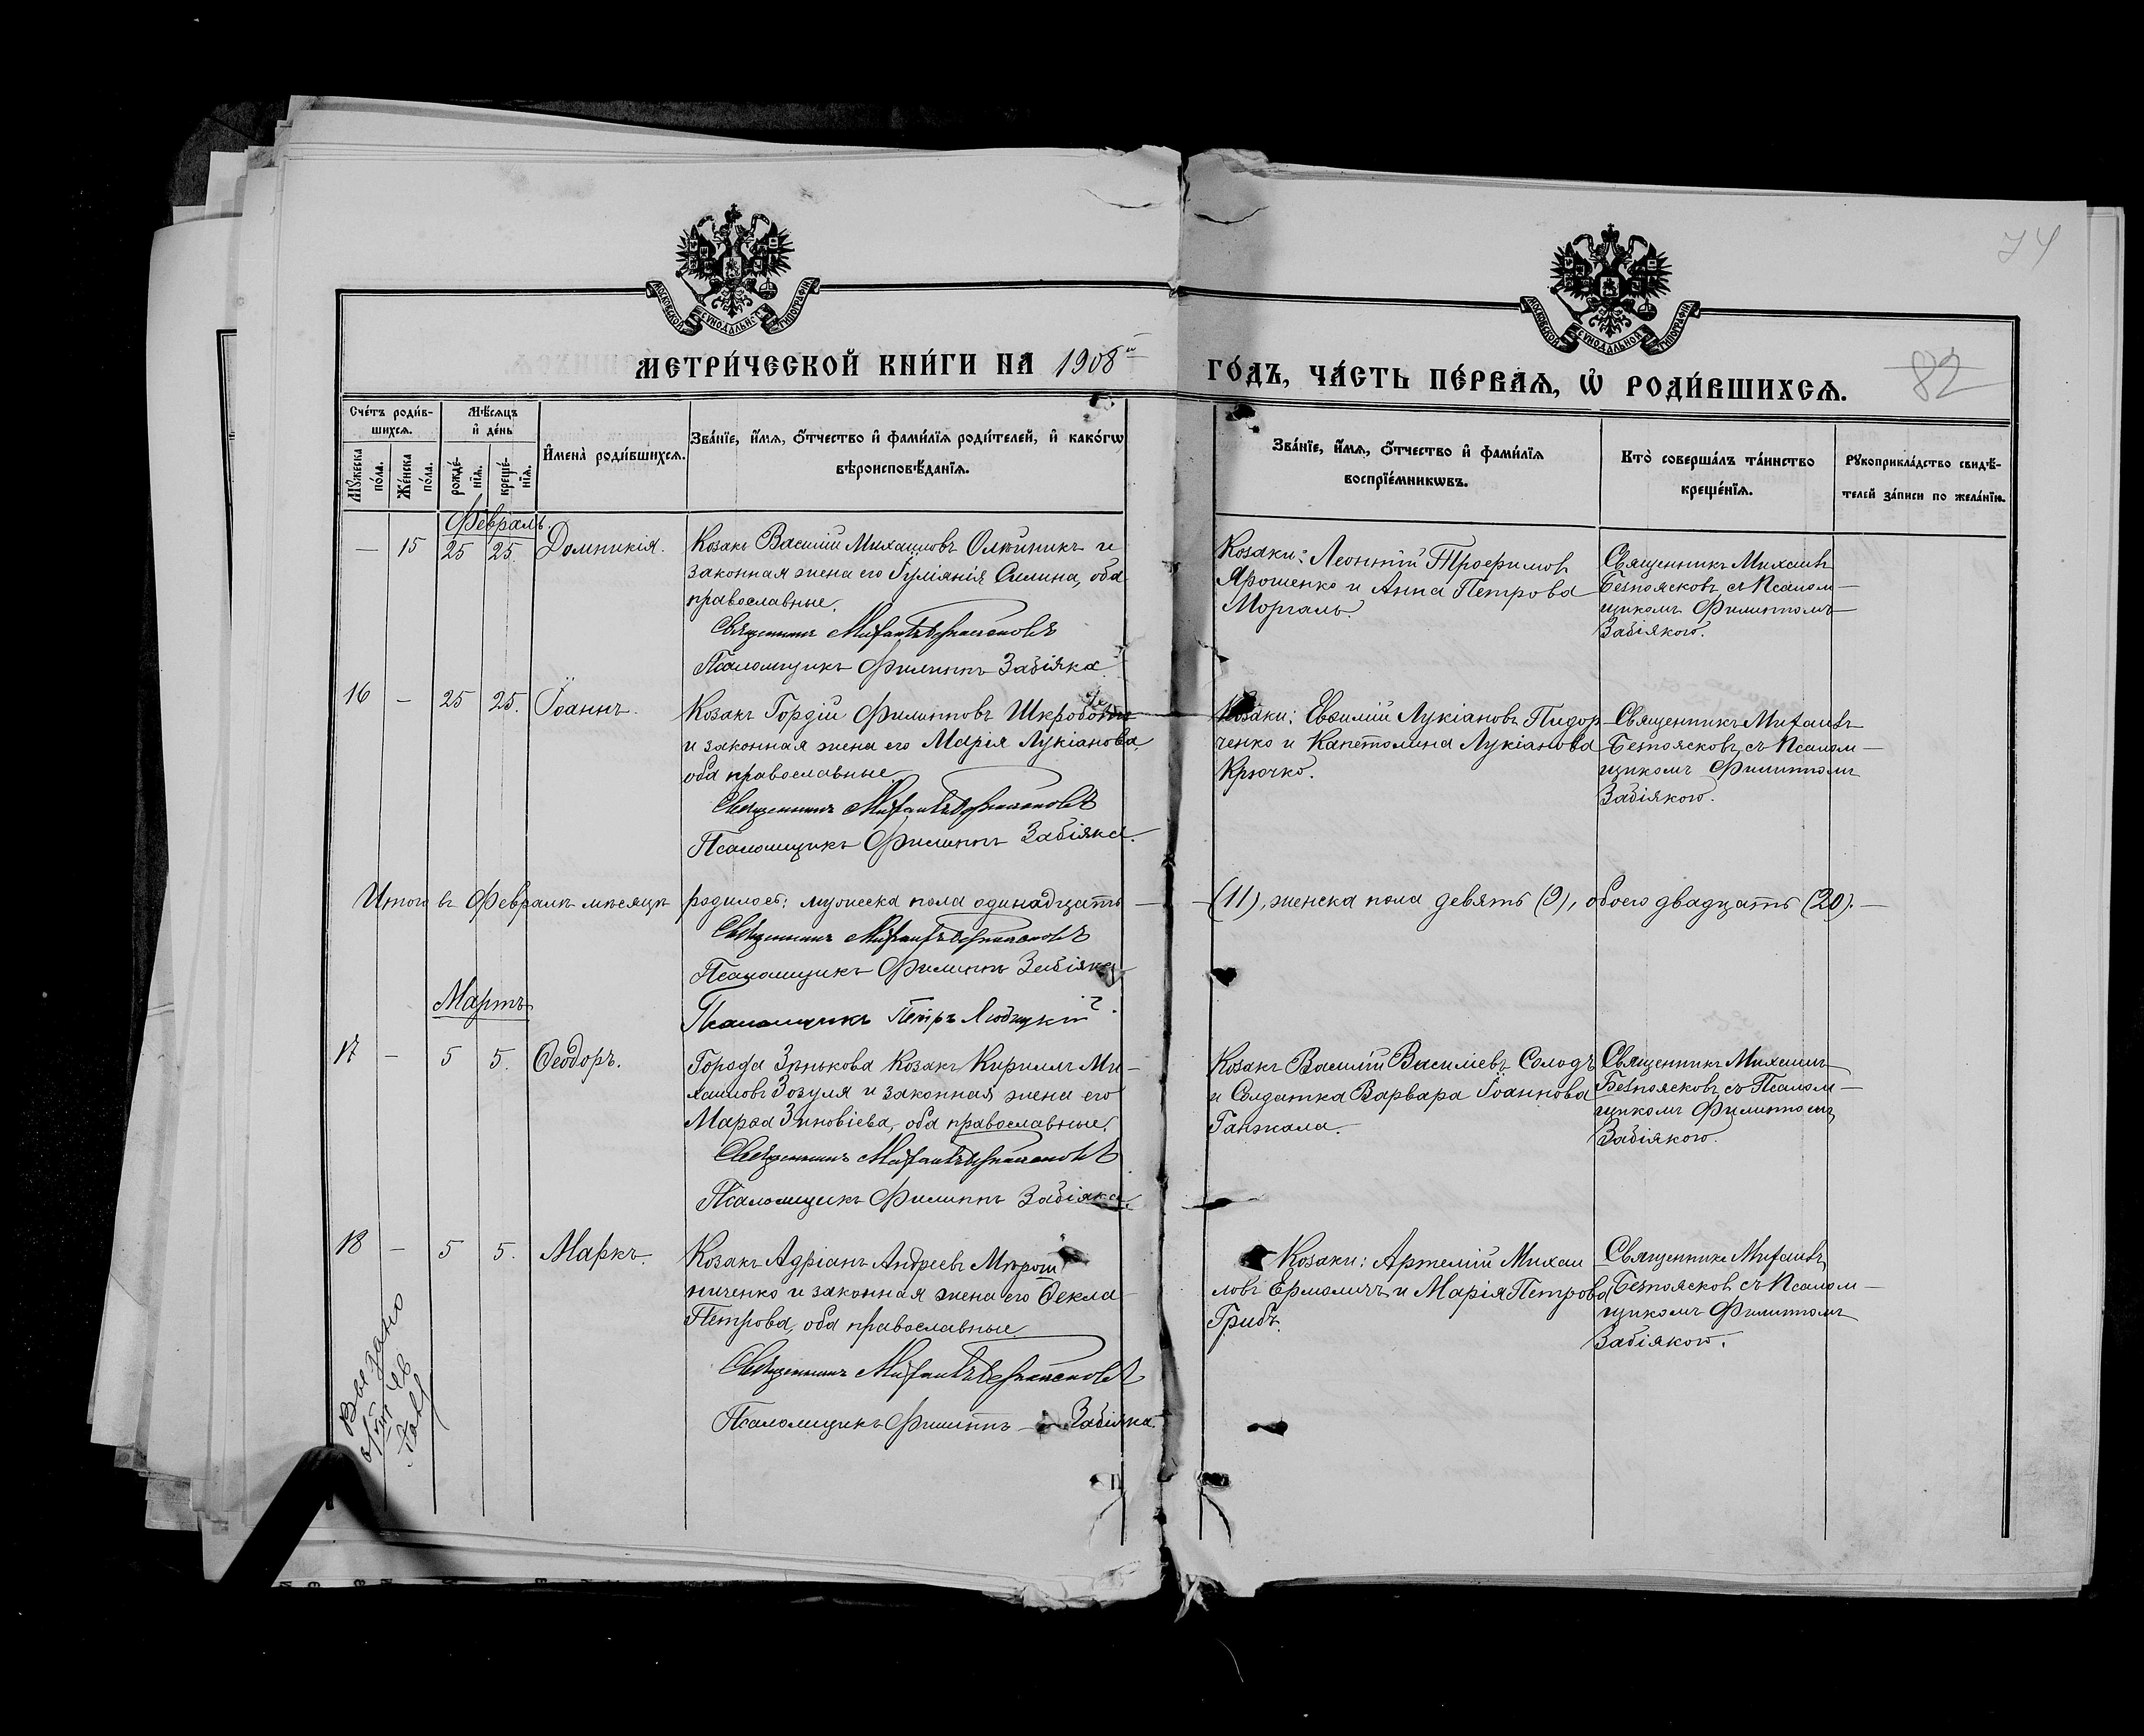 74
82
МОСКОВСКОЙ СѴНОДАЛЬНОЙ ТИПОГРАФІИ
МОСКОВСКОЙ СѴНОДАЛЬНОЙ ТИПОГРАФІИ
МЕТРИ́ЧЕСКОЙ КНИ́ГИ НА 1908й
ГО́ДЪ, ЧА́СТЬ ПЕ́РВАѦ, Ѡ҆ РОДИ́ВШИХСѦ.
Сче́тъ роди́в-
шихсѧ.
Мꙋ́жеска по́ла.
Же́нска по́ла.
Мѣ́сѧцъ
и҆ де́нь
рожде́-
нїѧ.
креще́-
нїѧ.
И҆мена̀ роди́вшихсѧ.
Зва́нїе, и҆́мѧ, ѻ҆́тчество и҆ фами́лїѧ роди́телей, и҆ како́гѡ
вѣроисповѣ́данїѧ.
Зва́нїе, и҆́мѧ, ѻ҆́тчество и҆ фами́лїѧ
воспрїе́мникѡвъ.
Кто̀ соверша́лъ та́инство
креще́нїѧ.
Рꙋкоприкла́дство свидѣ́-
телей за́писи по жела́нїю.
Февраль.
— 15 25 25. Домникія.
Козакъ Василій Михаиловъ Олюйникъ и
законная жена его Іуліанія Силина, оба
православные.
Священникъ Михаилъ Безпоясковъ
Псаломщикъ Филиппъ Забіяка.
Козаки: Леонтій Трофимов
Ярошенко и Анна Петрова
Моргаль.
Священникъ Михаилъ
Безпоясковъ, съ Псалом—
щикомъ Филиппомъ—
Забіякою.
16 — 25 25. Іоаннъ.
Козакъ Гордій Филипповъ
и законная жена его Марія Лукіанова
оба православные.
Священникъ Михаилъ Безпоясковъ
Псаломщикъ Филиппъ Забіяка.
Козаки: Евфимій Лукіановъ Пидор—
ченко и Капетолина Лукіанова
Крючко.
Священникъ Михаилъ
Безпоясковъ, съ Псалом—
щикомъ Филиппомъ
Забіякою.
Итого въ Февралѣ мѣсяцѣ родилось: мужеска пола одинадцать — —(11), женска пола девять (9), обоего двадцать (20).—
Священникъ Михаилъ Безпоясковъ
Псаломщикъ Филиппъ Забіяка
Псаломщикъ Петръ Любицкій.
Мартъ
17 — 5 5. Ѳеодоръ.
Города Зѣнькова Козакъ Кириллъ Ми—
хаиловъ Зозуля и законная жена его
Марѳа Зиновіева, оба православные.
Священникъ Михаилъ Безпоясковъ
Псаломщикъ Филиппъ Забіяка.
Козакъ Василій Василіевъ Солодъ
и Солдатка Варвара Іоаннова
Ганжала.
Священникъ Михаилъ
Безпоясковъ, съ Псалом—
щикомъ Филиппомъ
Забіякою.
18 — 5 5. Маркъ.
Козакъ Адріанъ Андреевъ Мирош
ниченко и законная жена его Ѳекла
Петрова, оба православные
Священникъ Михаилъ Безпоясковъ
Псаломщикъ Филиппъ — Забіяка.
Козаки: Артемій Михаи
ловъ Ермоличъ и Марія Петрова
Грибъ.
Священникъ Михаилъ
Безпоясков съ Псалом—
щикомъ Филиппомъ
Забіякою.